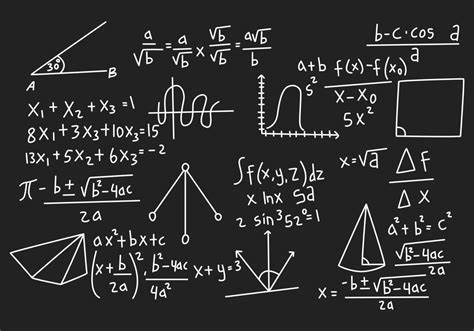 30°
A B
a/√b = a/√b × √b/√b = a√b/b
b-c·cos a/a
x₁ + x₂ + x₃ = 1
8x₁ + 3x₃ + 10x₃ = 15
13x₁ + 5x₂ + 6x₃ = -2
a+b
S²
f(x)-f(x₀)/x-x₀
5x²
π - b±√b²-4ac/2a
∫f(x,y,z)dz
x lnx 5a
2 sin³52°=1
x=√a
ΔF/ΔX
a²+b²=c²
√b²-4ac/2a
ax²+bx+c
(x+b/2a)², b²-4ac/4a²
x+y=3
x= -b±√b²-4ac/2a